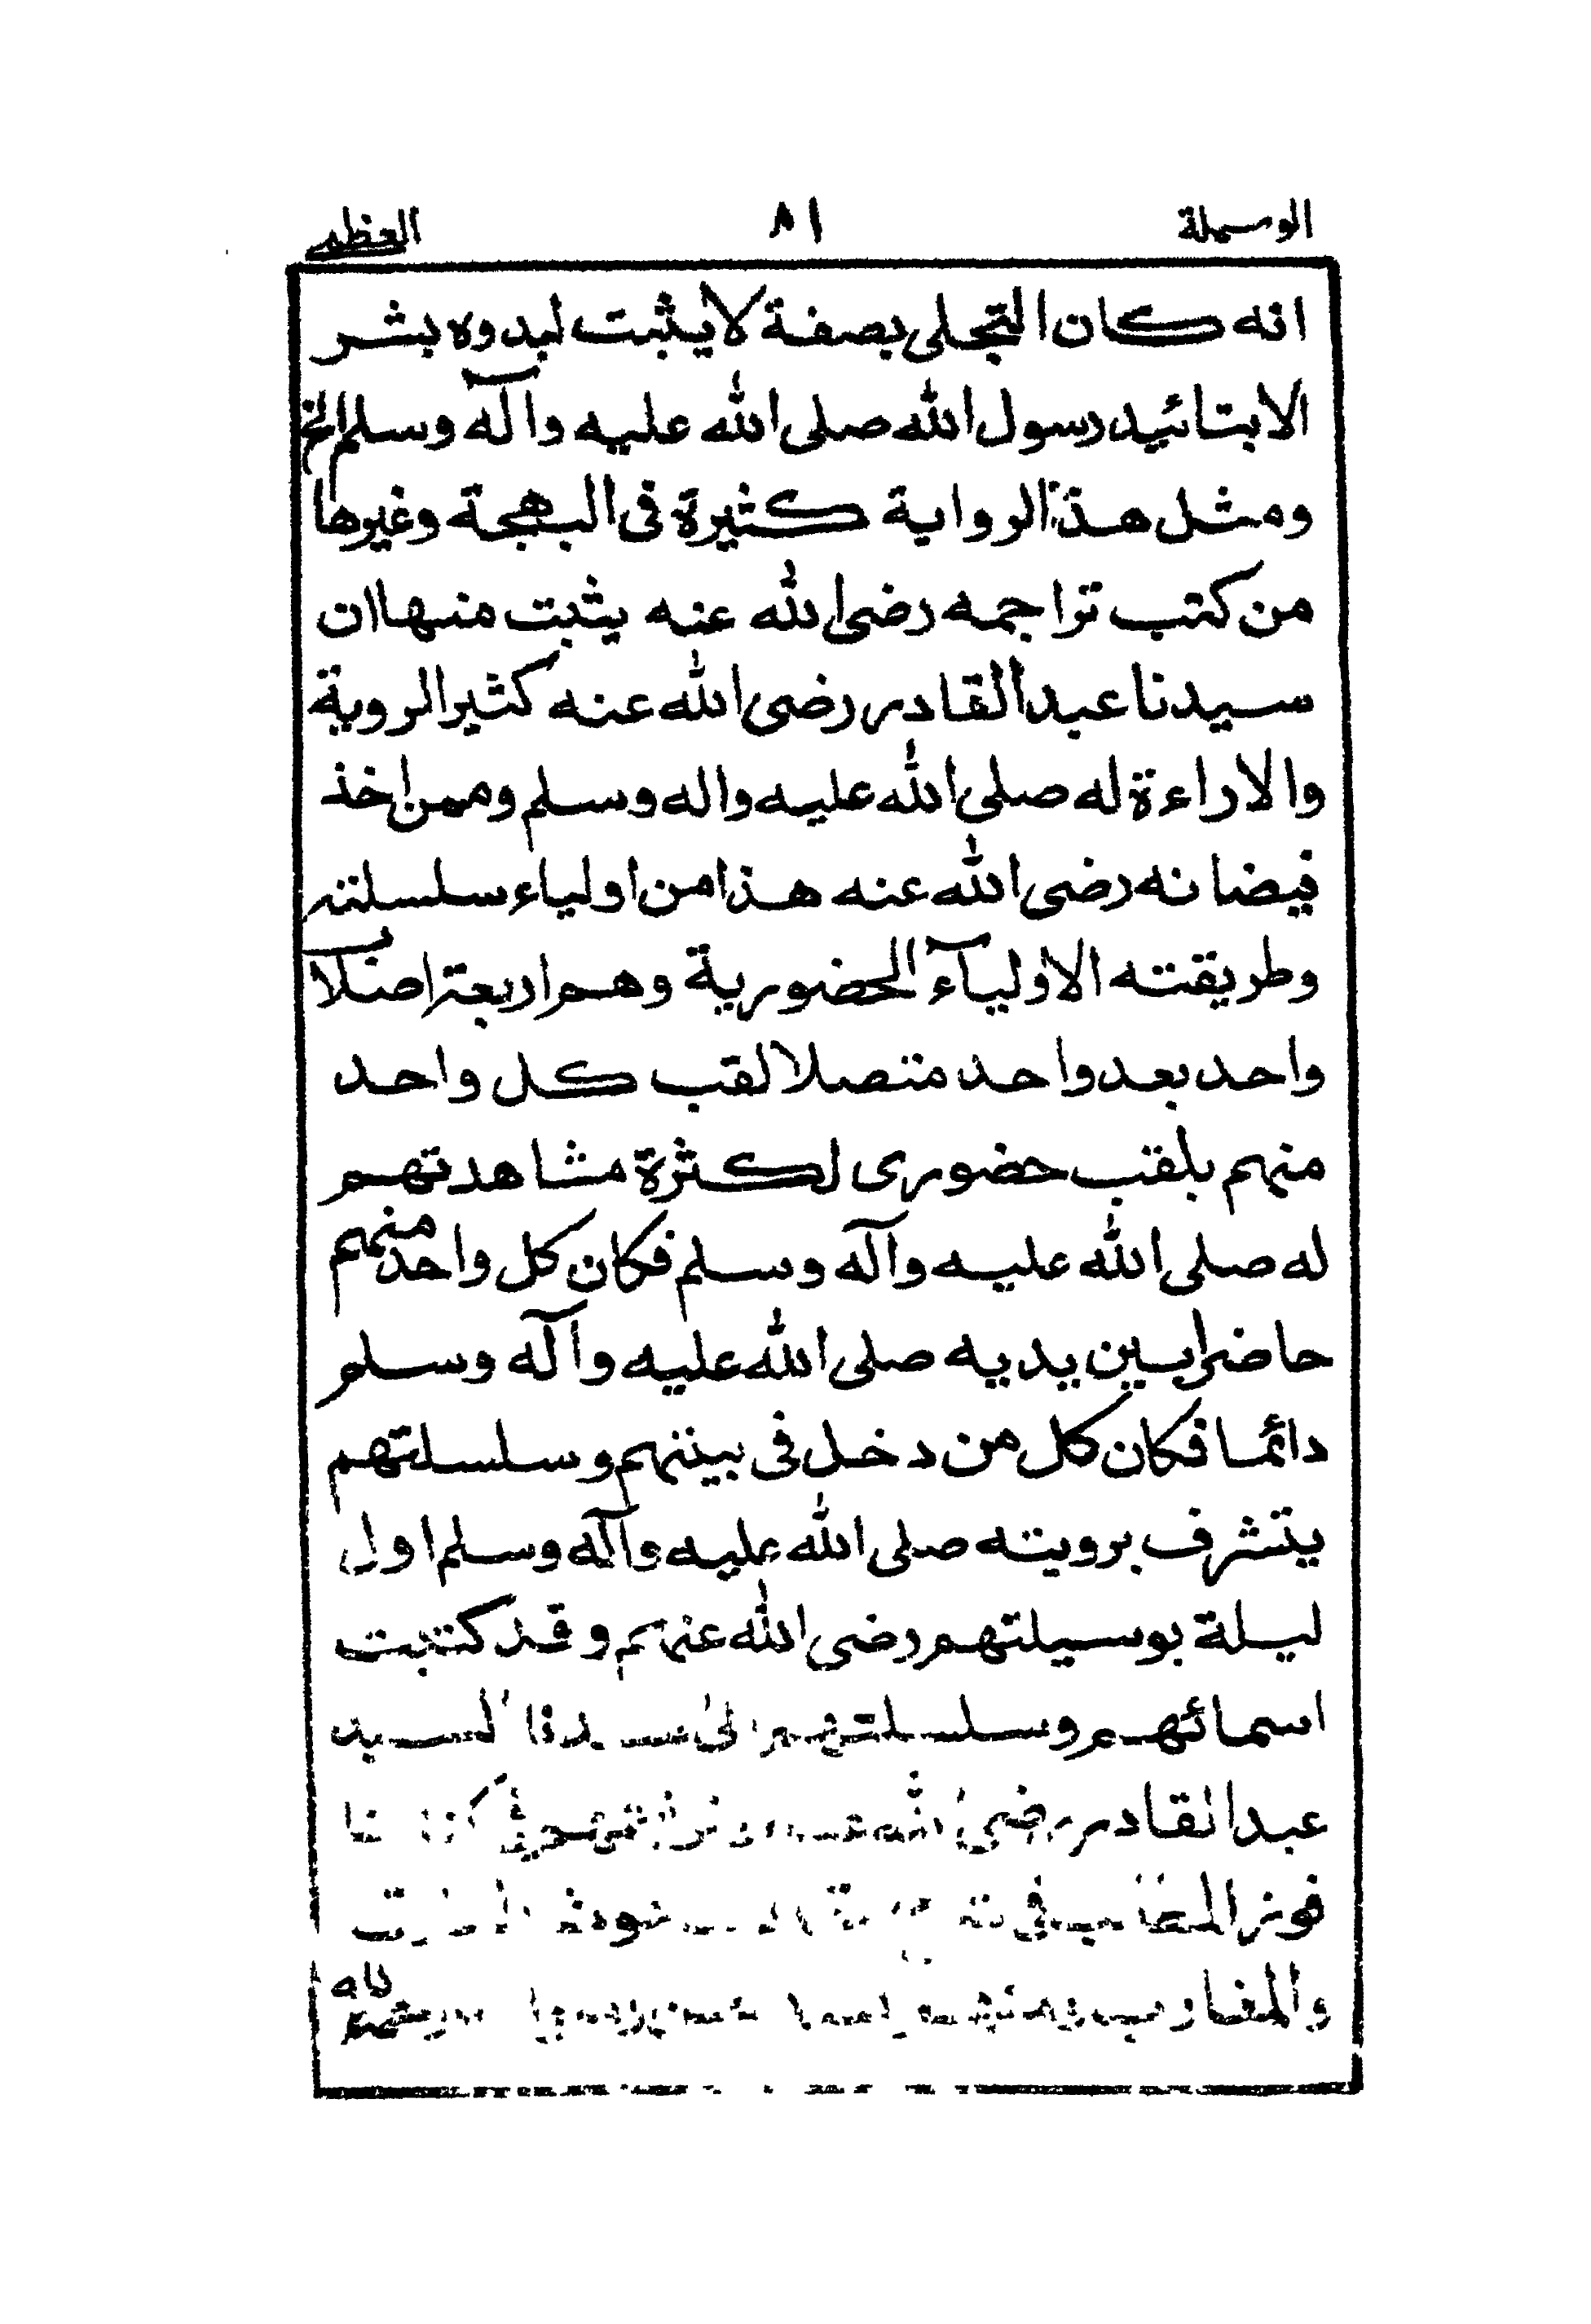 الوسيلة ٨١ العظمى
انه كان التجلى بصفة لا يثبت لبدوه بشر
الا بتائيد رسول الله صلى الله عليه وآله وسلم الخ
ومثل هذا الرواية كثيرة فى البهجة وغيرها
من كتب تراجمه رضى الله عنه يثبت منها ان
سيدنا عبد القادر رضى الله عنه كثير الروية
والاراءة له صلى الله عليه واله وسلم وممن اخذ
فيضانه رضى الله عنه هذا من اولياء سلسلته
وطريقته الاولياء الحضورية وهم اربعة
واحد بعد واحد متصلا لقب كل واحد
منهم بلقب حضورى لكثرة مشاهدتهم
له صلى الله عليه وآله وسلم فكان كل واحد منهم
حاضرا بين يديه صلى الله عليه وآله وسلم
دائما فكان كل من دخل فى بيتهم وسلسلتهم
يتشرف برويته صلى الله عليه وآله وسلم اول
ليلة بوسيلتهم رضى الله عنهم وقد كتبت
اسمائهم وسلسلتهم الى سيدنا السيد
عبد القادر رضى الله عنه
فوز المطالب فى
والمغارب